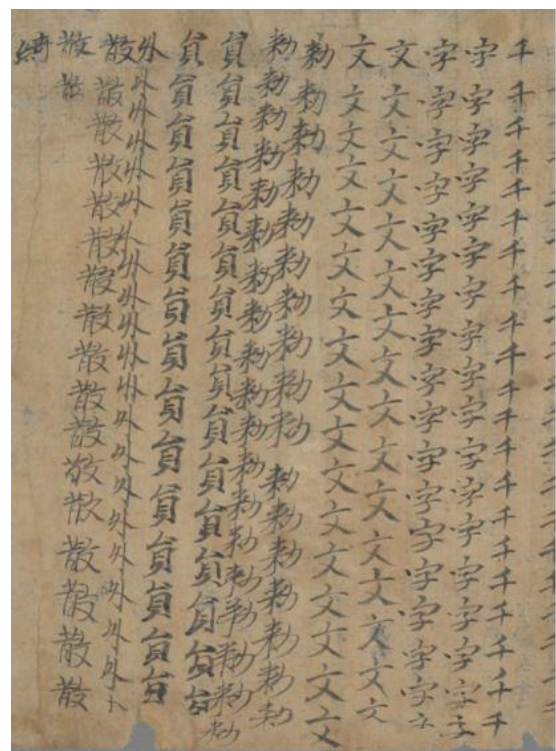 千千千千千千千千千千千千千千千千千千千千千千千
字字字字字字字字字字字字字字字字字字字
字字字字字字字字字字字字字字字字字字
文文文文文文文文文文文文文文文文文
文文文文文文文文文文文文文文文文文
勑勑勑勑勑勑勑勑勑勑勑勑勑勑勑勑勑
勑勑勑勑勑勑勑勑勑勑勑勑勑勑勑勑勑勑勑
員員員員員員員員員員員員員員員員
員員員員員員員員員員員員員員員
外外外外外外外外外外外外外外外外外外外外外
散散散散散散散散散散散散散散散散散
散散
綺